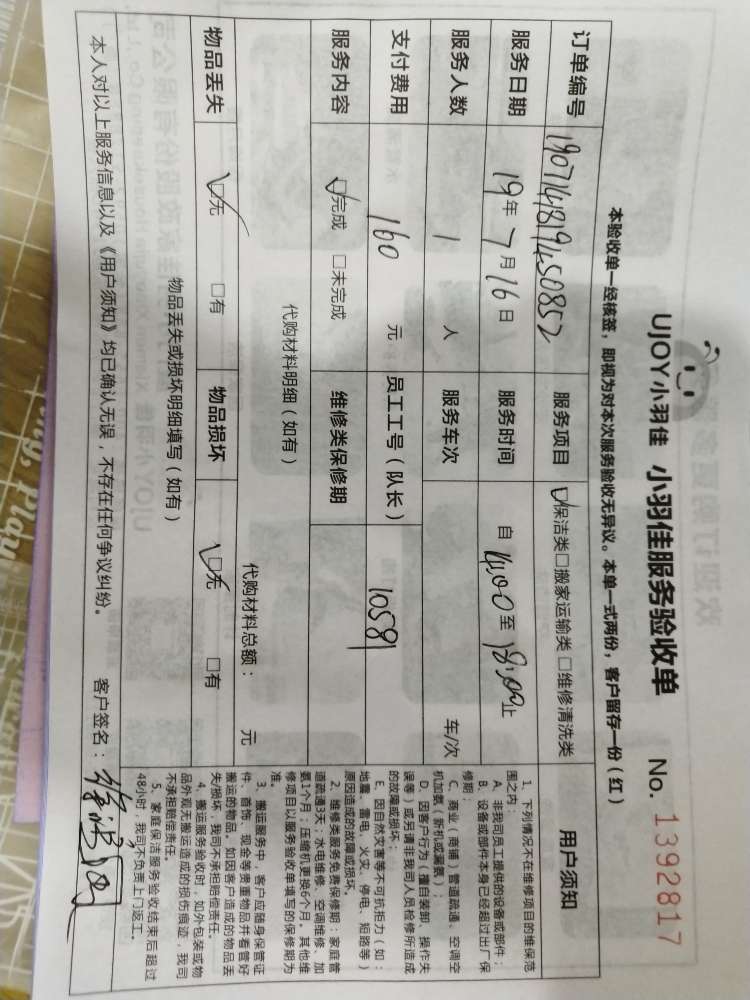 UJOY小羽佳 小羽佳服务验收单 No. 1392817
本验收单一经核签，即视为对本次服务验收无异议。本单一式两份，客户留存一份（红）
订单编号 1907141819450852 服务项目 ☑保洁类□搬家运输类 □维修清洗类
服务日期 19年 7月 16日 服务时间 自 14:00 至 18:00 止
服务人数 1 人 服务车次 车/次
支付费用 160 元 员工工号（队长） 10581
服务内容 ☑完成 □未完成 维修类保修期
代购材料明细（如有）
代购材料总额： 元
物品丢失 ☑无 □有 物品损坏 ☑无 □有
物品丢失或损坏明细填写（如有）
用户须知
1、下列情况不在维修项目的维保范
围之内：
A、非我司员工提供的设备或部件；
B、设备或部件本身已经超过出厂保
修期；
C、商业（商铺）管道疏通、空调空
机加氨（新机或漏氨）；
D、因客户行为（擅自装卸、操作失
误等）或另请非我司人员检修所造成
的故障或损坏；
E、因自然灾害等不可抗拒力（如：
地震、雷电、火灾、停电、短路等）
原因造成的故障或损坏。
2、维修类服务免费保修期：家庭管
道疏通3天；水电维修、空调维修、加
氨1个月；压缩机更换6个月。其他维
修项目以服务验收单填写的保修期为
准。
3、搬运服务中，客户应随身保管证
件、首饰、现金等贵重物品并看管好
搬运的物品，如因客户造成的物品丢
失/损坏，我司不承担赔偿责任。
4、搬运服务验收时，如外包装或物
品外观无搬运造成的损伤痕迹，我司
不承担赔偿责任。
5、家庭保洁服务验收结束后超过
48小时，我司不负责上门返工。
本人对以上服务信息以及《用户须知》均已确认无误，不存在任何争议纠纷。 客户签名：